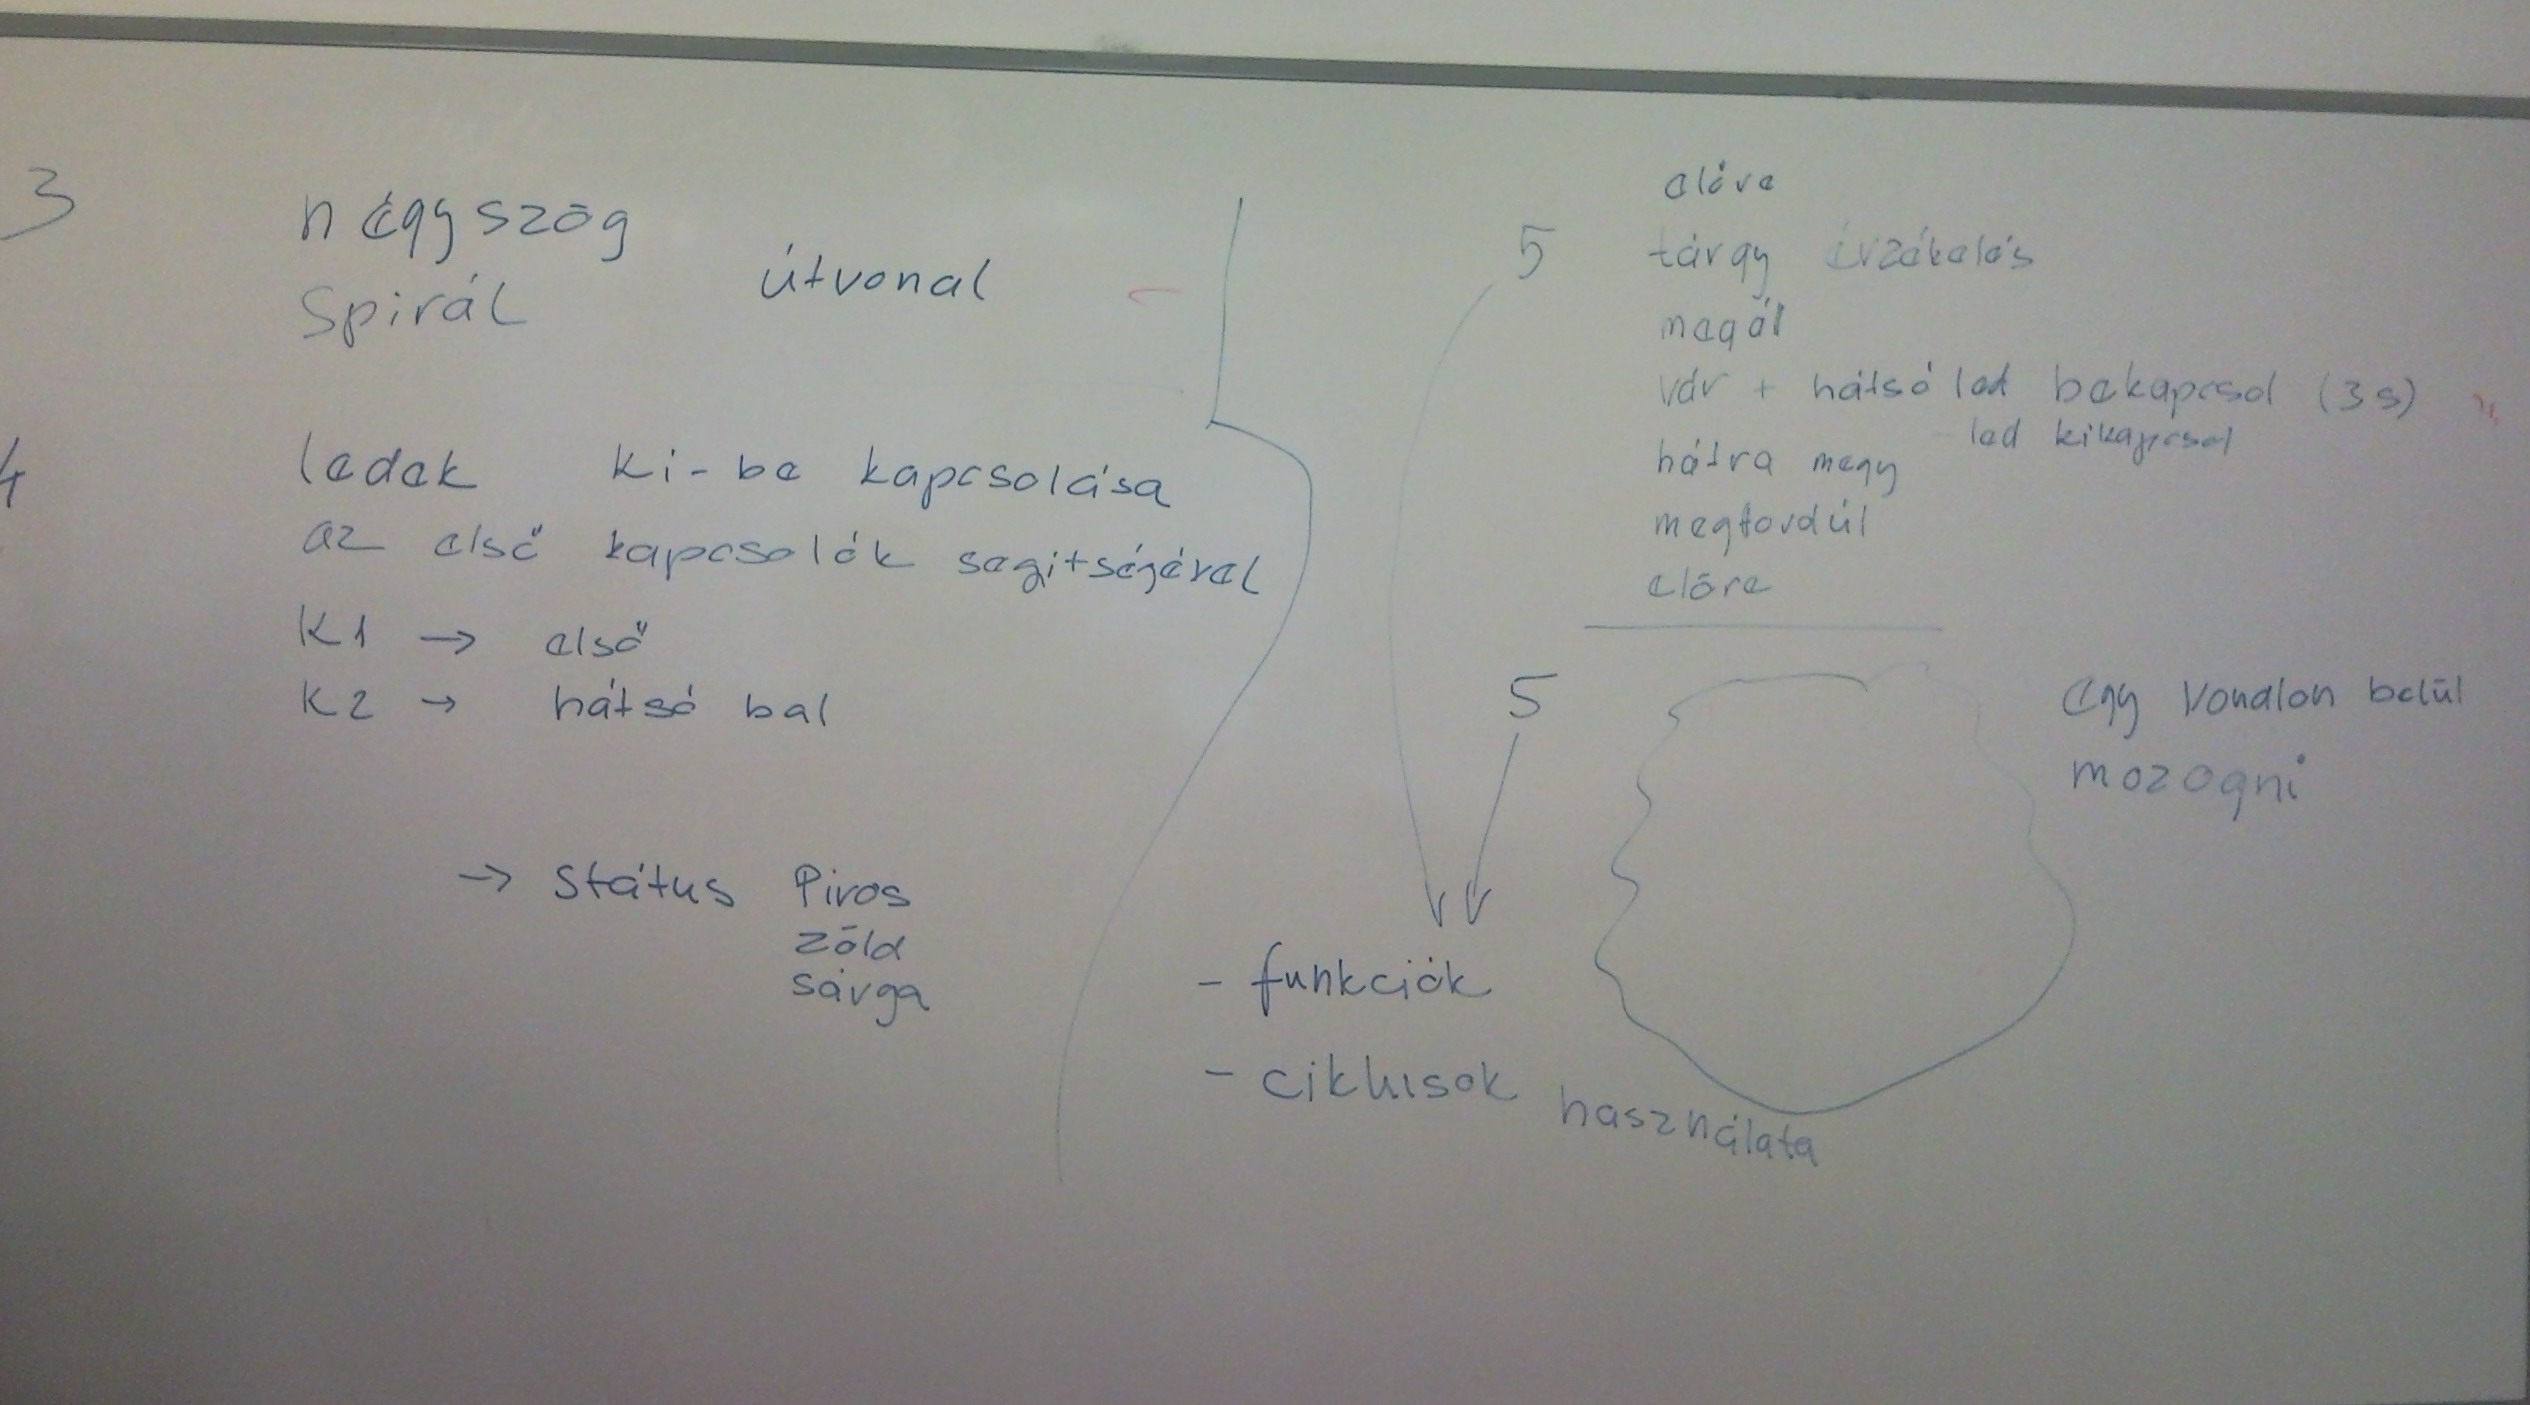 3
négyszög
spirál útvonal
4
ledek ki-be kapcsolása
az első kapcsolók segitségével
K1 → első
K2 → hátsó bal
→ státus Piros
zöld
sárga
előre
5 tárgy érzékelés
megál
vár + hátsó led bekapcsol (3s)
- led kikapcsol
hátra megy
megfordúl
előre
5 egy vonalon belül
mozogni
- funkciók
- ciklusok használata